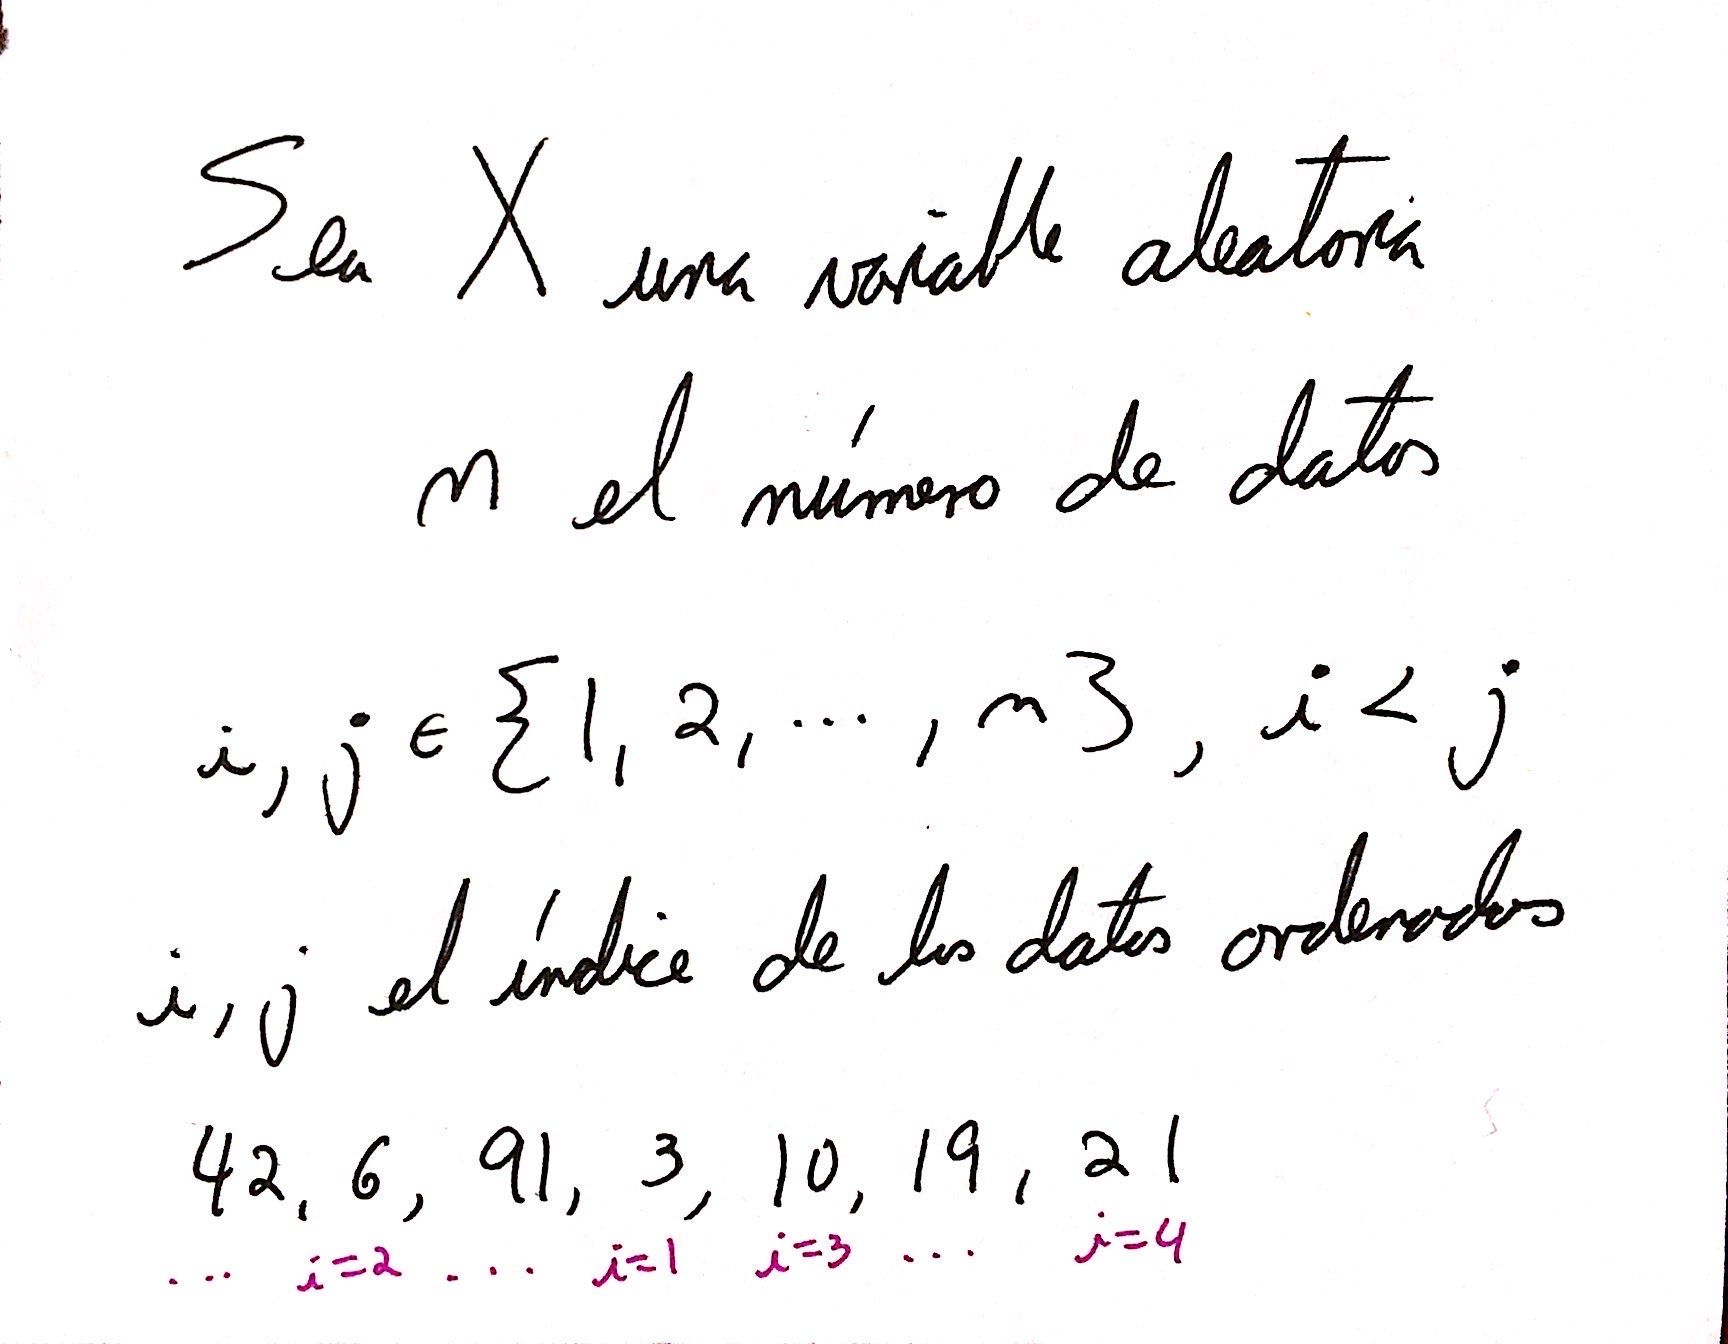 Sea X una variable aleatoria
n el número de datos
i, j ∈ {1, 2, ... , n} , i < j
i, j el índice de los datos ordenados
42, 6, 91, 3, 10, 19, 21
... i=2 ... i=1 i=3 ... i=4